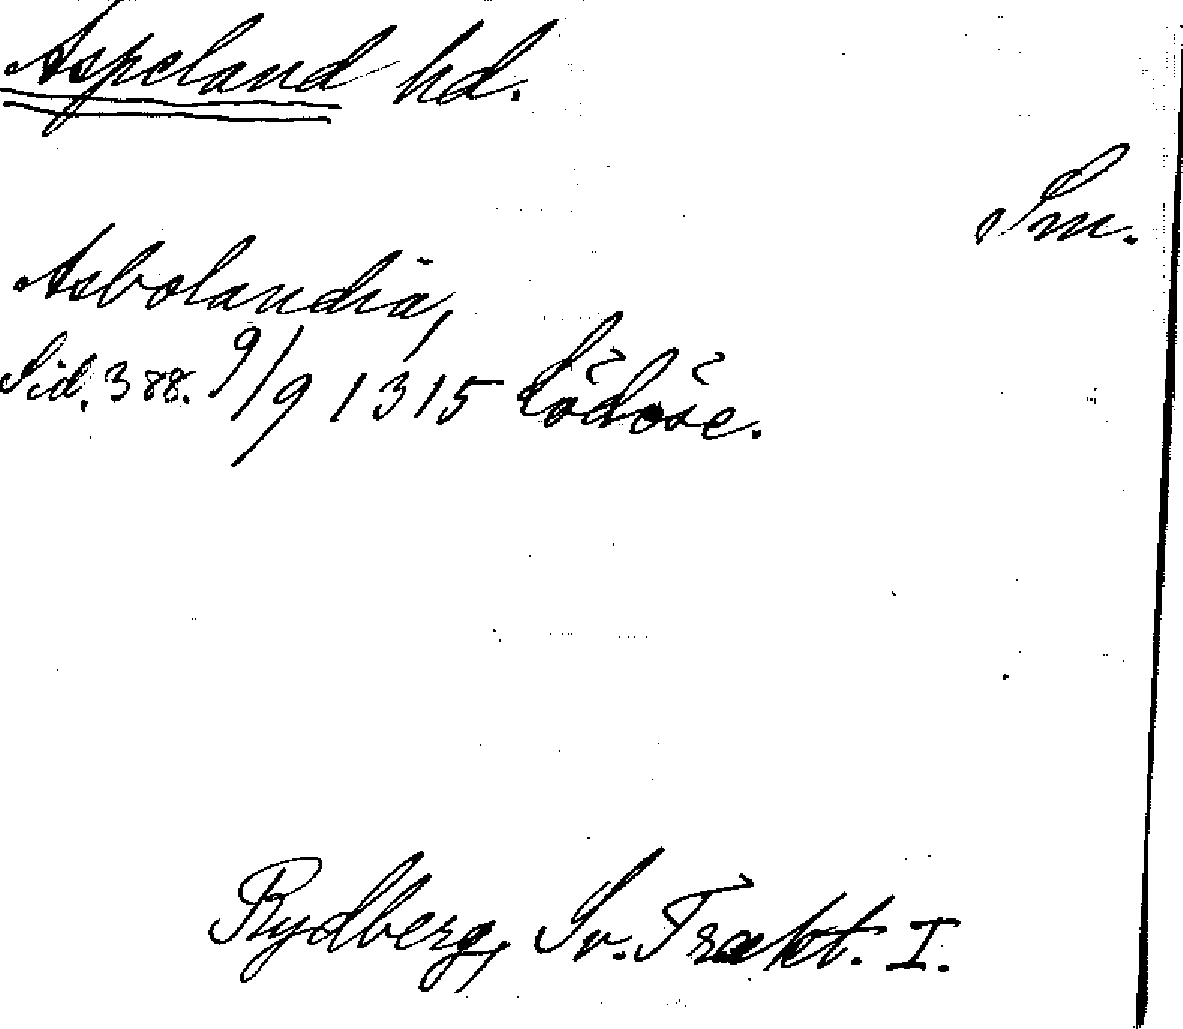 Aspeland hd.
Sm.
Asbolandia,
Sid. 388. 9/9 1315 Lödöse.
Rydberg, Sv. Trakt. I.